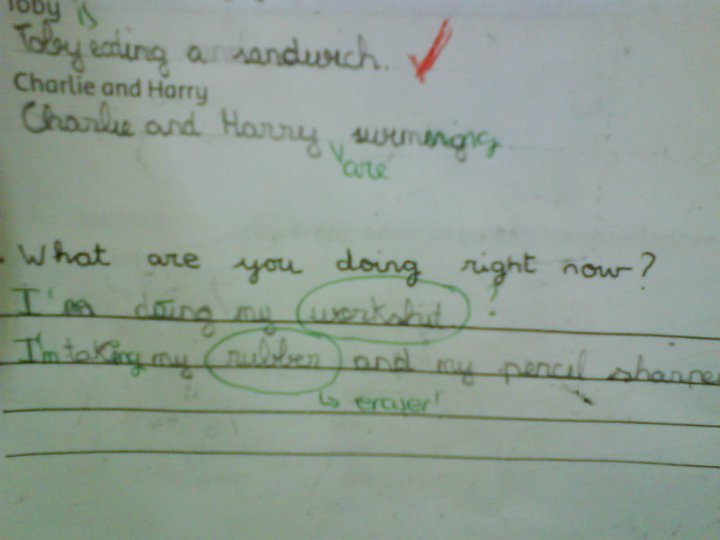 Toby is
Toby eating a sandwich.
Charlie and Harry
Charlie and Harry swimmging
are
What are you doing right now?
I'm doing my workshit ?
I'm taking my rubber and my pencil sharpe
↳ eraser!